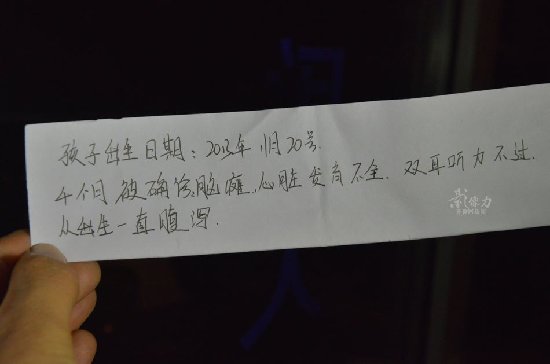 孩子出生日期：2013年1月20号.
4个月被确诊脑瘫.心脏发育不全.双耳听力不过.
从出生一直腹泻.
影像力